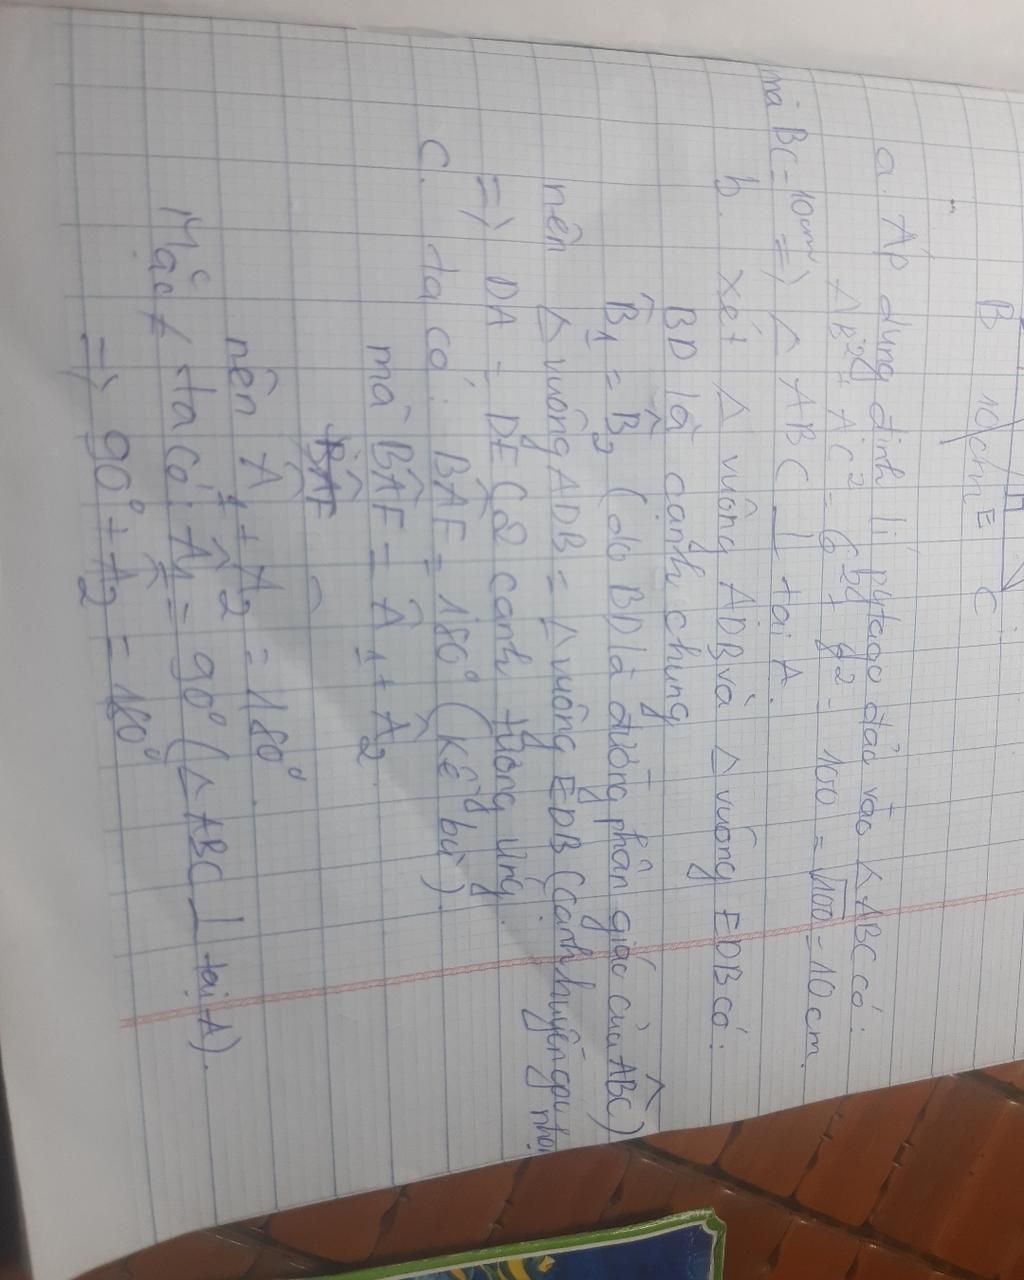 B 10 cm E C
a. Áp dụng định lí Pytago đảo vào △ABC có:
AB² + AC² = 6² + 8² = 100 = √100 = 10cm.
mà BC = 10cm => △ABC ⊥ tại A.
b. xét △ vuông ADB và △ vuông EDB có:
BD là cạnh chung
B̂₁ = B̂₂ (do BD là đường phân giác của ABĈ)
nên △ vuông ADB = △ vuông EDB (cạnh huyền góc nhọn
=> DA = DE (2 cạnh tương ứng.
c. ta có: BÂF = 180° (kề bù)
mà BÂF = Â₁ + Â₂
BÂF
nên Â₁ + Â₂ = 180°
Mặc ≠ ta có: Â₁ = 90° (△ABC ⊥ tại A).
=> 90° + Â₂ = 180°